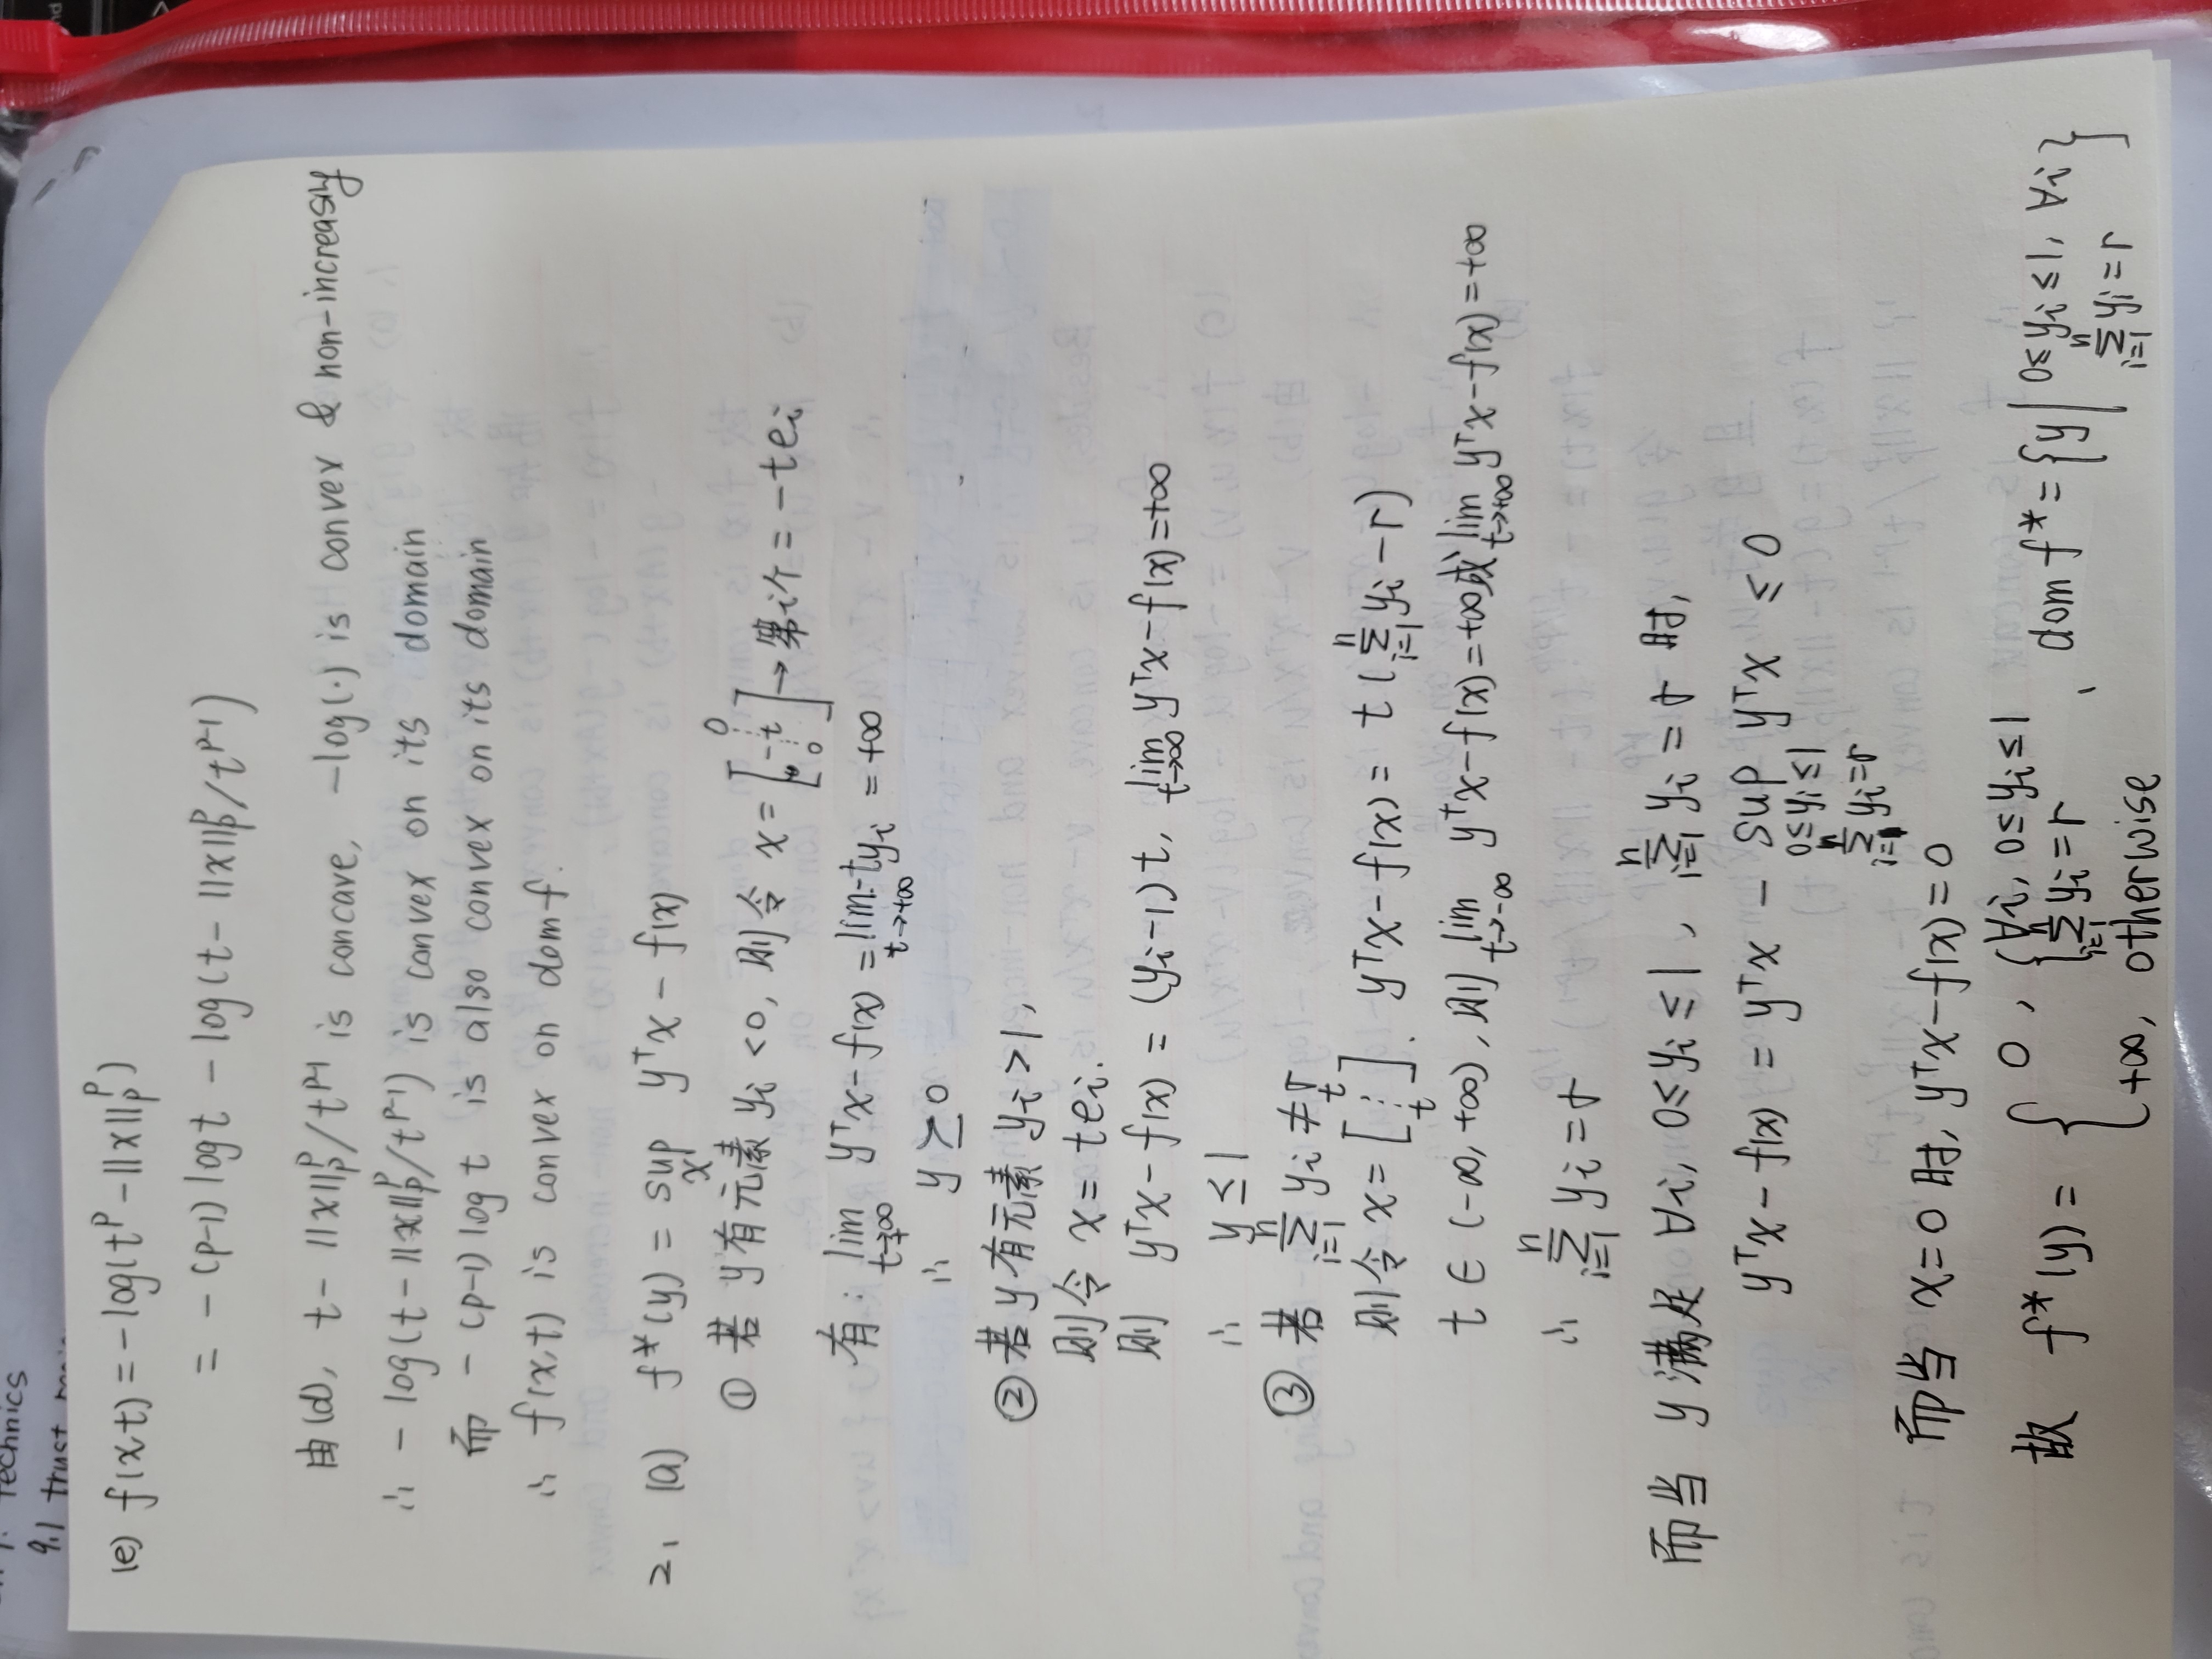 Technics
9.1 trust
(e) f(x,t) = -log(t^p - ||x||_p^p)
= -(p-1) log t - log(t - ||x||_p^p / t^{p-1})
由(d), t - ||x||_p^p / t^{p-1} is concave, -log(·) is convex & non-increasing
∴ -log(t - ||x||_p^p / t^{p-1}) is convex on its domain
而 -(p-1) log t is also convex on its domain
∴ f(x,t) is convex on dom f.
2. (a) f*(y) = sup_x y^T x - f(x)
① 若 y有元素 y_i < 0, 则令 x = [0 ⋮ -t ⋮ 0] → 第i个 = -te_i
有: lim_{t→+∞} y^T x - f(x) = lim_{t→+∞} -ty_i = +∞
∴ y ⪰ 0
② 若 y 有元素 y_i > 1,
则令 x = te_i.
则 y^T x - f(x) = (y_i - 1) t, lim_{t→∞} y^T x - f(x) = +∞
∴ y ⪯ 1
③ 若 Σ_{i=1}^n y_i ≠ r
则令 x = [t ⋮ t]. y^T x - f(x) = t (Σ_{i=1}^n y_i - r)
t ∈ (-∞, +∞), 则 lim_{t→-∞} y^T x - f(x) = +∞ 或 lim_{t→+∞} y^T x - f(x) = +∞
∴ Σ_{i=1}^n y_i = r
而当 y 满足 ∀i, 0 ≤ y_i ≤ 1, Σ_{i=1}^n y_i = r 时,
y^T x - f(x) = y^T x - sup_{0≤y_i≤1, Σ_{i=1}^n y_i=r} y^T x ≤ 0
而当 x = 0 时, y^T x - f(x) = 0
故 f*(y) = { 0, { ∀i, 0 ≤ y_i ≤ 1, Σ_{i=1}^n y_i = r , dom f* = { y | 0 ≤ y_i ≤ 1, ∀i, Σ_{i=1}^n y_i = r }
+∞, otherwise